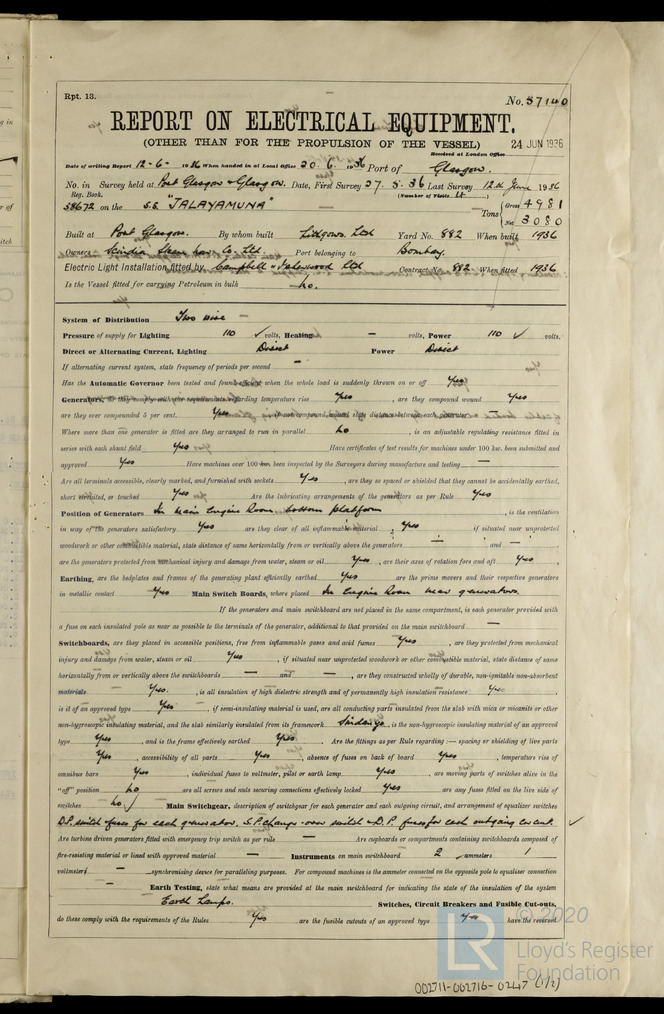 Rpt. 13.
No. 57140
REPORT ON ELECTRICAL EQUIPMENT.
(OTHER THAN FOR THE PROPULSION OF THE VESSEL)
24 JUN 1936
Received at London Office
Date of writing Report 12-6- 1936 When handed in at Local Office 20.6.1936 Port of Glasgow.
No. in Survey held at Port Glasgow & Glasgow. Date, First Survey 27.5.36 Last Survey 12th June 1936
Reg. Book. (Number of Visits 4)
58672 on the S.S. "JALAYAMUNA" Tons { Gross 4981
Net 3080
Built at Port Glasgow. By whom built Lithgows. Ltd Yard No. 882 When built 1936
Owners Scindia Steam Nav. Co. Ltd. Port belonging to Bombay.
Electric Light Installation fitted by Campbell & Isherwood Ltd Contract No. 882 When fitted 1936
Is the Vessel fitted for carrying Petroleum in bulk No.
System of Distribution Two wire
Pressure of supply for Lighting 110 ✓ volts, Heating — volts, Power 110 ✓ volts.
Direct or Alternating Current, Lighting Direct Power Direct
If alternating current system, state frequency of periods per second —
Has the Automatic Governor been tested and found when the whole load is suddenly thrown on or off Yes
Generators, regarding temperature rise Yes, are they compound wound Yes
are they over compounded 5 per cent. Yes, if not compound wound state distance between each generator —
Where more than one generator is fitted are they arranged to run in parallel No, is an adjustable regulating resistance fitted in
series with each shunt field Yes Have certificates of test results for machines under 100 kw. been submitted and
approved Yes Have machines over 100 kw. been inspected by the Surveyors during manufacture and testing —
Are all terminals accessible, clearly marked, and furnished with sockets Yes, are they so spaced or shielded that they cannot be accidentally earthed,
short circuited, or touched Yes Are the lubricating arrangements of the generators as per Rule Yes
Position of Generators In Main Engine Room. bottom platform, is the ventilation
in way of the generators satisfactory Yes are they clear of all inflammable material Yes if situated near unprotected
woodwork or other combustible material, state distance of same horizontally from or vertically above the generators — and —,
are the generators protected from mechanical injury and damage from water, steam or oil Yes, are their axes of rotation fore and aft Yes
Earthing, are the bedplates and frames of the generating plant efficiently earthed Yes are the prime movers and their respective generators
in metallic contact Yes Main Switch Boards, where placed In Engine Room near generators.
If the generators and main switchboard are not placed in the same compartment, is each generator provided with
a fuse on each insulated pole as near as possible to the terminals of the generator, additional to that provided on the main switchboard —
Switchboards, are they placed in accessible positions, free from inflammable gases and acid fumes Yes, are they protected from mechanical
injury and damage from water, steam or oil Yes, if situated near unprotected woodwork or other combustible material, state distance of same
horizontally from or vertically above the switchboards — and —, are they constructed wholly of durable, non-ignitable non-absorbent
materials Yes., is all insulation of high dielectric strength and of permanently high insulation resistance Yes,
is it of an approved type Yes, if semi-insulating material is used, are all conducting parts insulated from the slab with mica or micanite or other
non-hygroscopic insulating material, and the slab similarly insulated from its framework Sindanyo, is the non-hygroscopic insulating material of an approved
type Yes, and is the frame effectively earthed Yes. Are the fittings as per Rule regarding :— spacing or shielding of live parts
Yes, accessibility of all parts Yes, absence of fuses on back of board Yes, temperature rise of
omnibus bars Yes, individual fuses to voltmeter, pilot or earth lamp Yes, are moving parts of switches alive in the
"off" position No are all screws and nuts securing connections effectively locked Yes are any fuses fitted on the live side of
switches No ✓ Main Switchgear, description of switchgear for each generator and each outgoing circuit, and arrangement of equaliser switches
D.P. switch fuses for each generator. S.P. change-over switch & D.P. fuses for each outgoing circuit. ✓
Are turbine driven generators fitted with emergency trip switch as per rule — Are cupboards or compartments containing switchboards composed of
fire-resisting material or lined with approved material — Instruments on main switchboard 2 ammeters 1
voltmeters — synchronising device for paralleling purposes. For compound machines is the ammeter connected on the opposite pole to equaliser connection
— Earth Testing, state what means are provided at the main switchboard for indicating the state of the insulation of the system
Earth Lamps. Switches, Circuit Breakers and Fusible Cut-outs,
do these comply with the requirements of the Rules Yes are the fusible cutouts of an approved type Yes have the reversed
LR
© 2020
Lloyd's Register
Foundation
002711-002716-0247 (1/2)